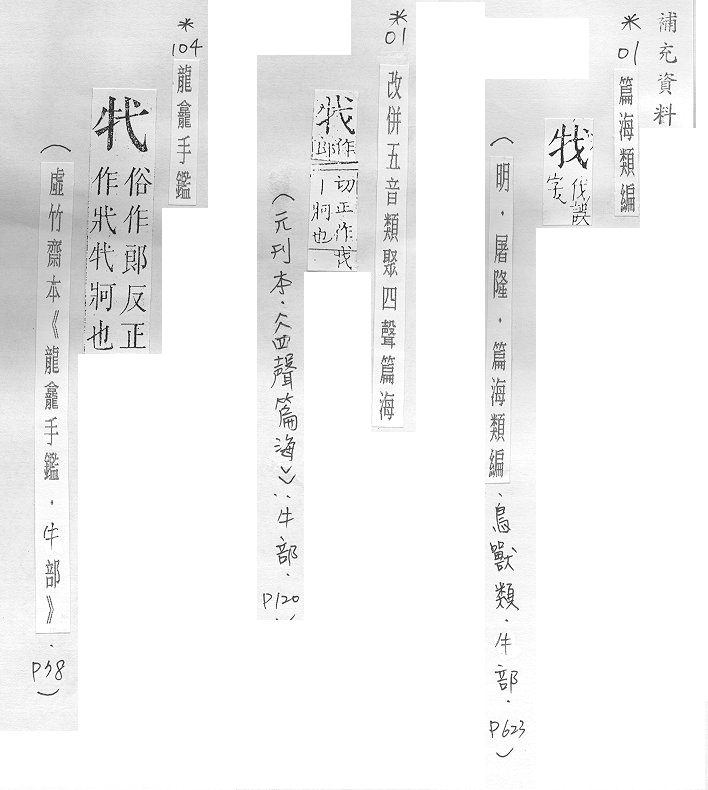 補充資料
*01
篇海類編
牫
（明．屠隆．篇海類編．鳥獸類．牛部．P623）
*01
改併五音類聚四聲篇海
牫
作郎
切正作
｜牁也
（元刊本．《四聲篇海》：牛部．P120）
*104
龍龕手鑑
俗作郎反正
作牁也
（虛竹齋本《龍龕手鑑．牛部》．P38）